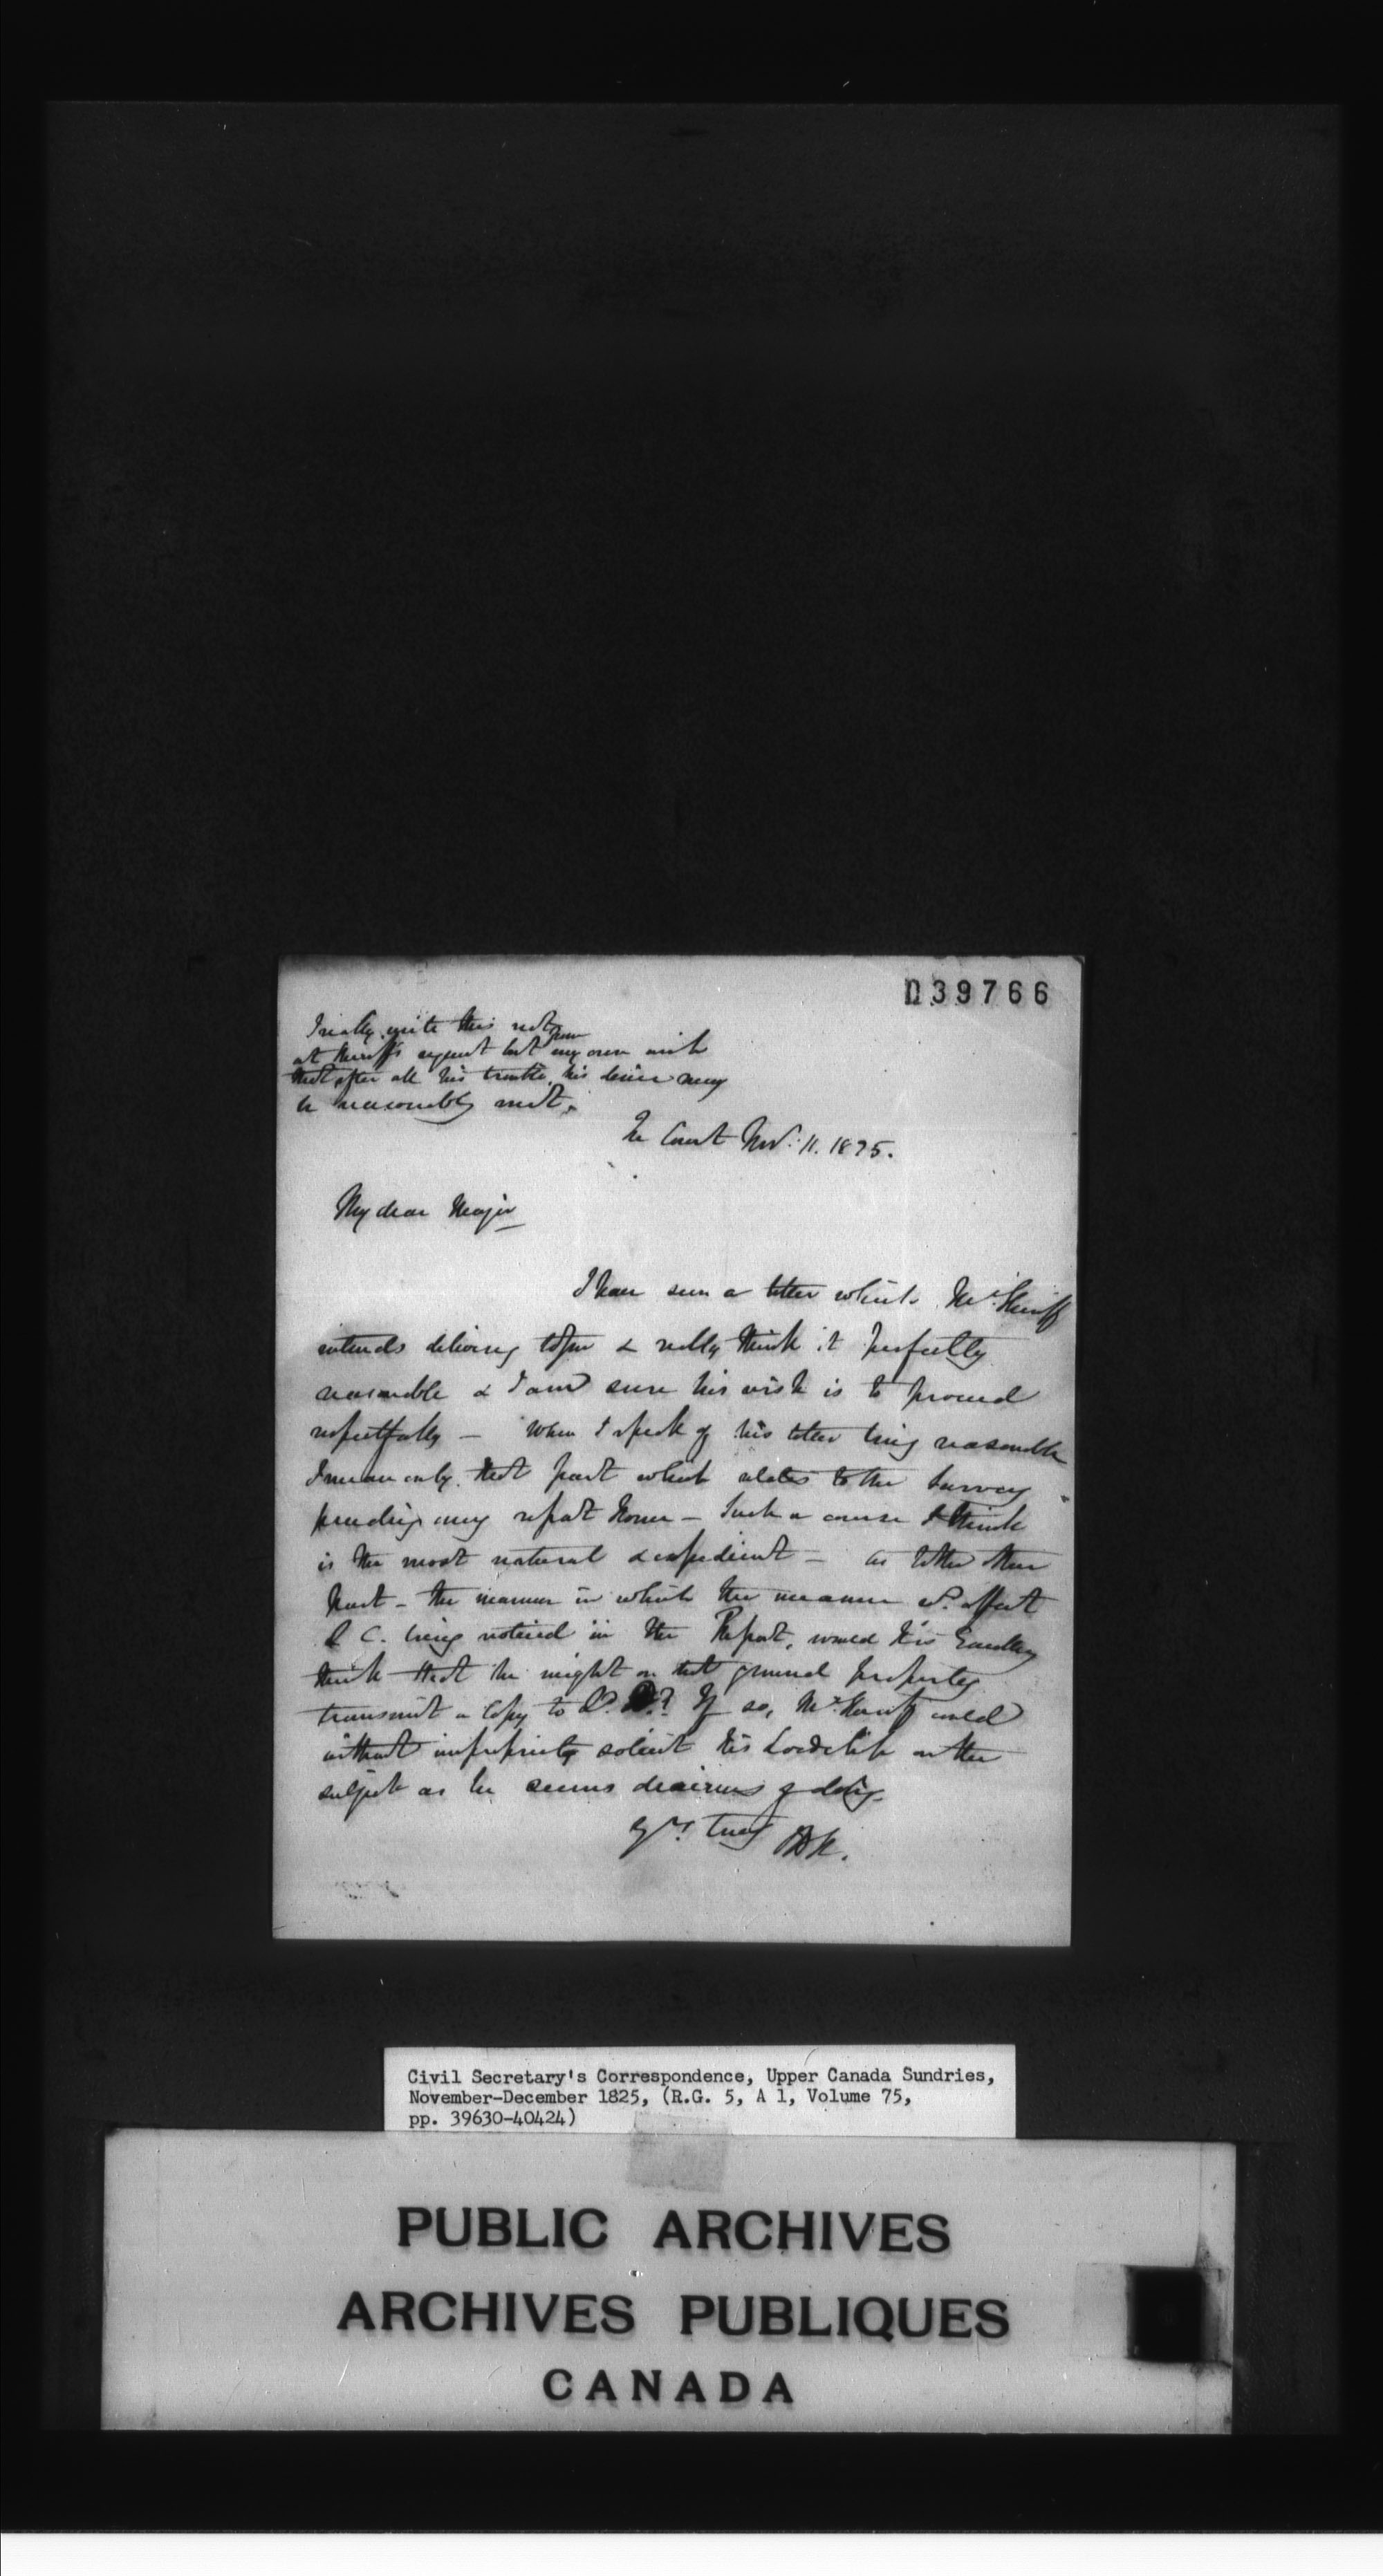 D39766
I really write this not
at Sheriff's request but from my own wish
that after all his trouble, his desire may
be reasonably met.
In Court Nov. 11. 1825.
My dear Major
I have seen a letter which Mr. Sheriff
intends delivering to you & really think it perfectly
reasonable & I am sure his wish is to proceed
respectfully — When I speak of his letter being reasonable
I mean only that part which relates to the Survey
pending any report home — Such a course I think
is the most natural & expedient — as to the other
part — the manner in which the measure wd. affect
L C. being noticed in the Report, would His Excellency
think that he might on that ground properly
transmit a Copy to Ld. D.? If so, Mr. Sheriff could
without impropriety solicit his Lordship on the
subject as he seems desirous of doing.
Yrs. truly
Civil Secretary's Correspondence, Upper Canada Sundries,
November-December 1825, (R.G. 5, A 1, Volume 75,
pp. 39630-40424)
PUBLIC ARCHIVES
ARCHIVES PUBLIQUES
CANADA